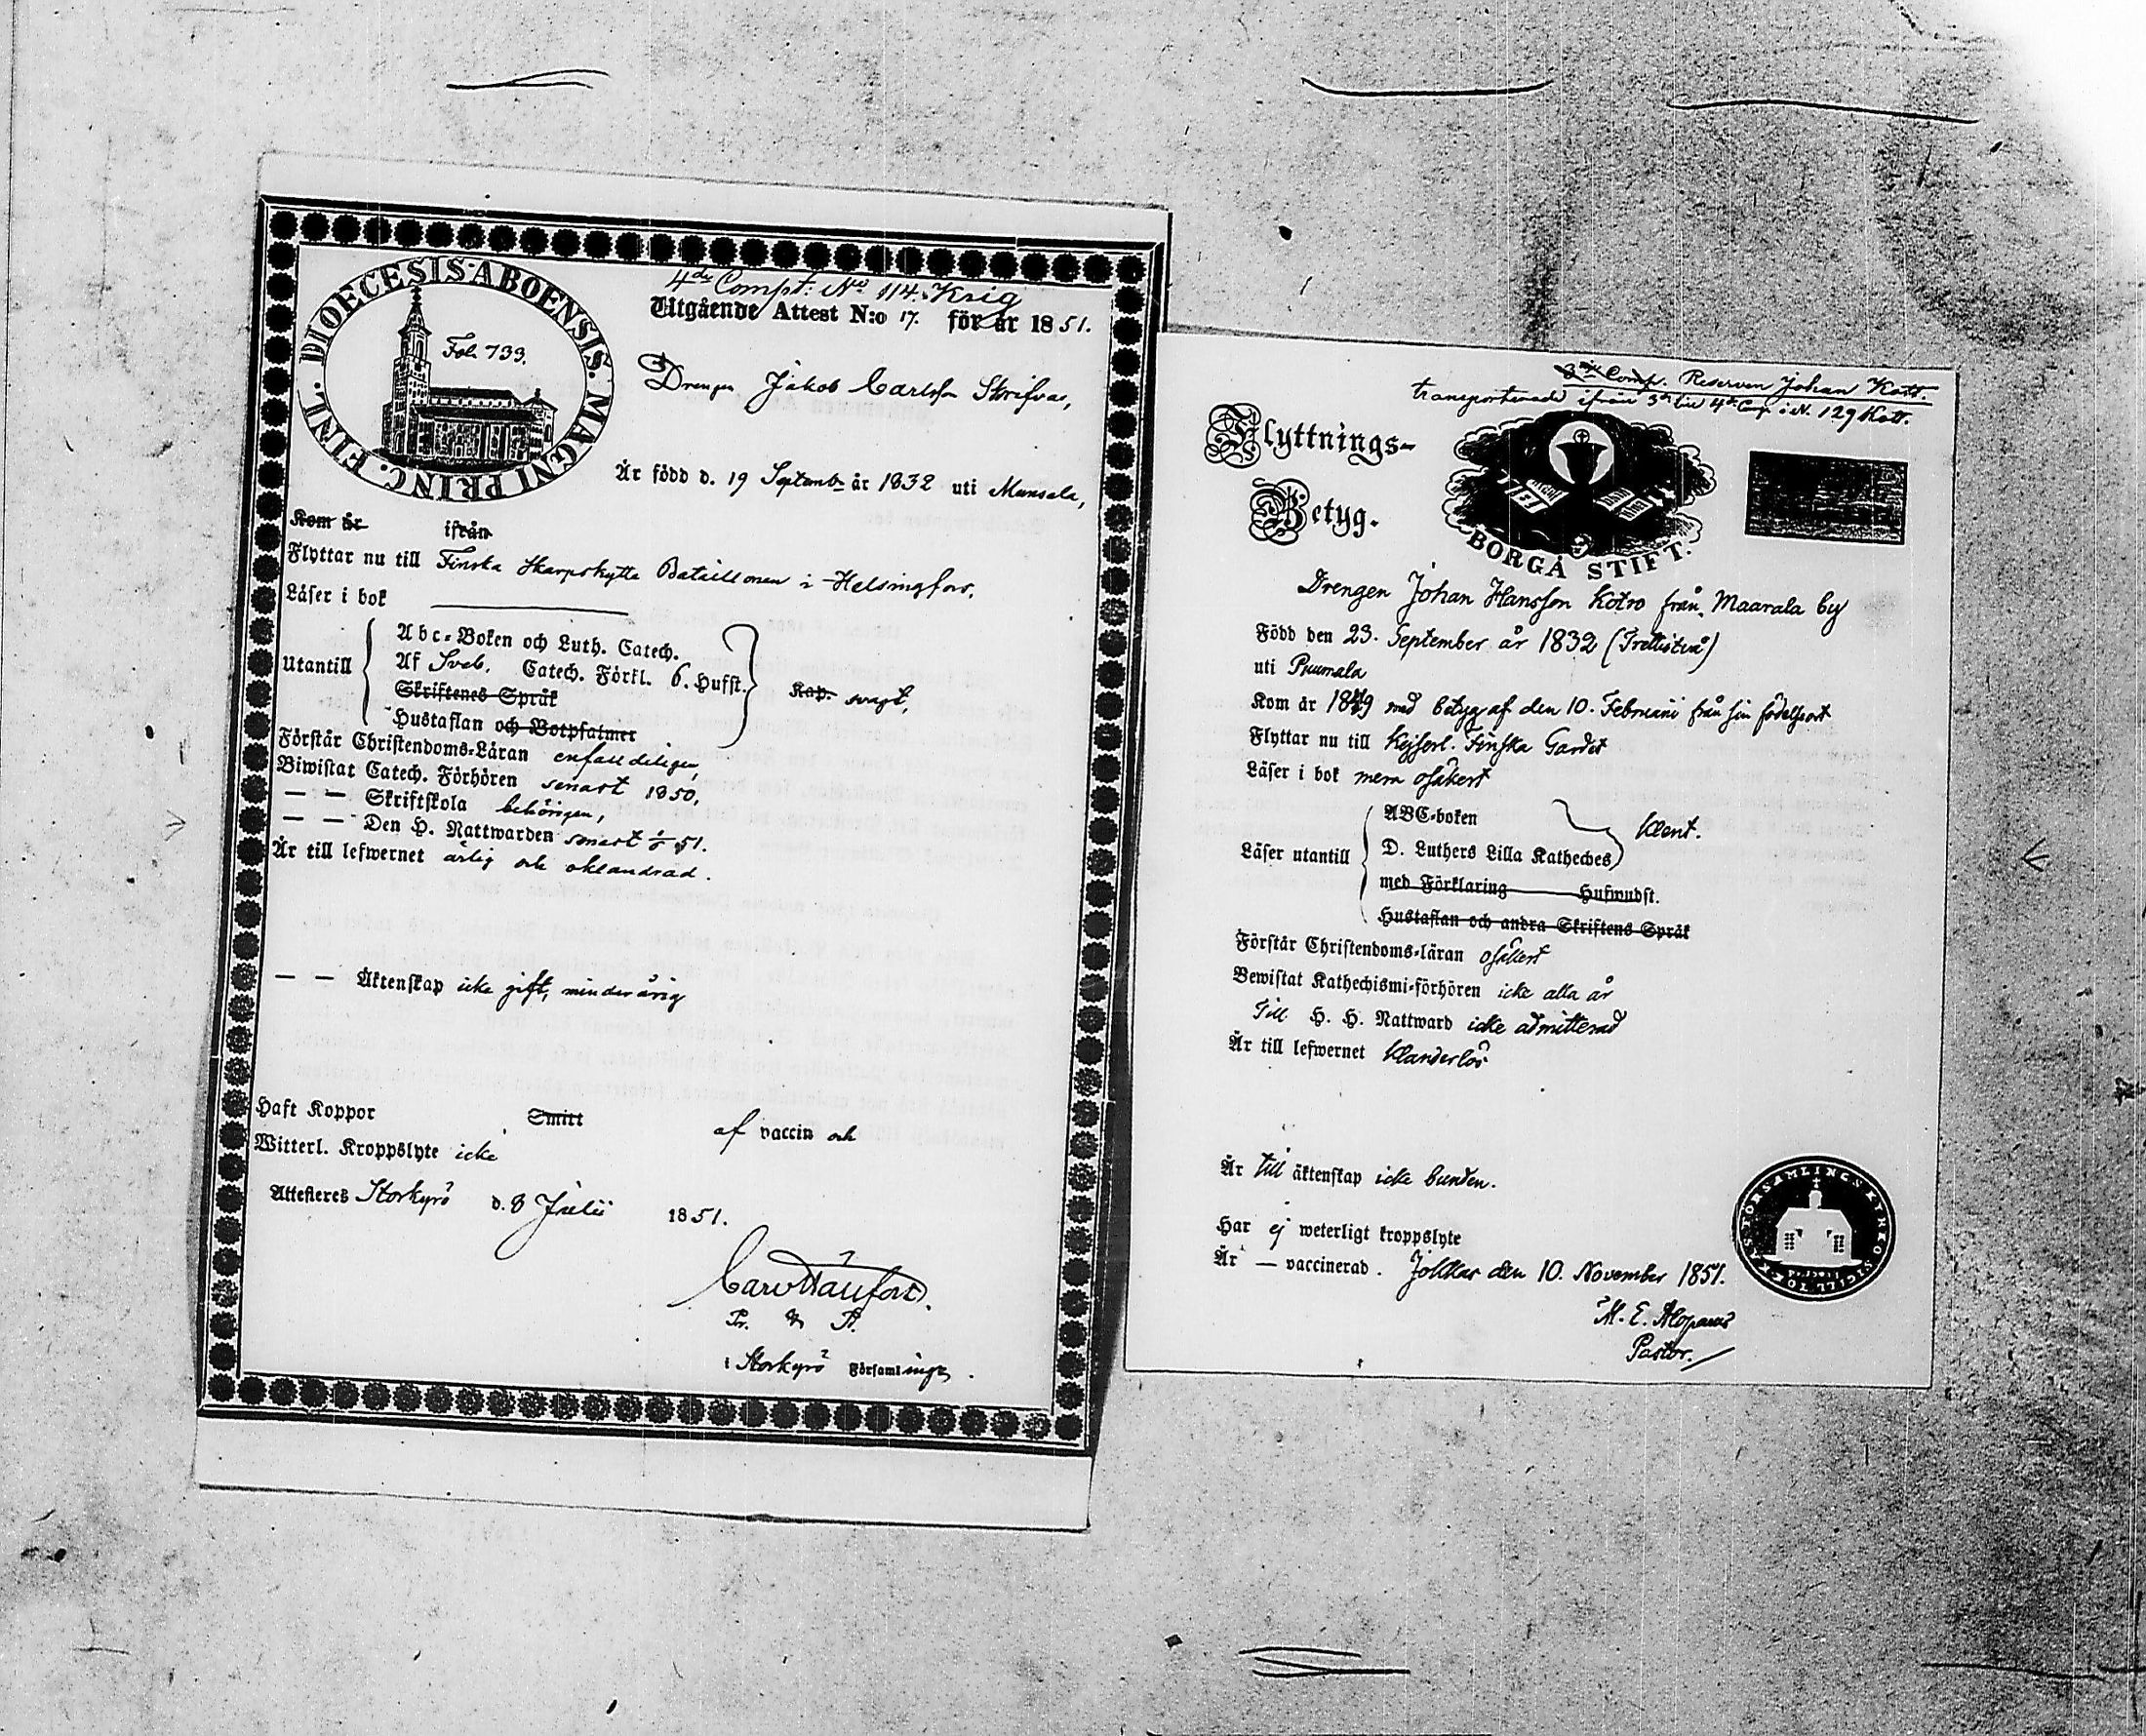 DIOECESIS ABOENSIS. MAGNI PRINC. FINL.
Fol. 733.
4de Compt: No 114. Krig
Utgående Attest N:o 17. för år 1851.
Drengen Jakob Carlsson Skrifvas,
Är född d. 19 Septemb. år 1832 uti Munsala,
Kom år ifrån
Flyttar nu till Finska Skarpskytte Bataillonen i Helsingfors.
Läser i bok
Utantill
Abc-Boken och Luth. Catech.
Af Sveb. Catech. Förkl. 6. Hufst.
Skriftenes Språk
Hustaflan och Botpsalmer
Kap. svagt,
Förstår Christendoms-Läran enfaldeligen,
Biwistat Catech. Förhören senast 1850,
— — Skriftskola behörigen,
— — Den H. Nattwarden senast 51.
Är till lefwernet ärlig och oklandrad.
— — Äktenskap icke gift, minderårig
Haft Koppor Smitt af vaccin och
Witterl. Kroppslyte icke
Attesteres Storkyrö d. 8 Julii 1851.
i Storkyrö Församlingz.
3dje Comp. Reserven Johan Kott.
transporterade ifrån 3e till 4e Comp i N. 129 Kott.
Flyttnings-
Betyg.
BORGÅ STIFT.
Drengen Johan Hansson Kotro från Maarala by
Född den 23. September år 1832 (Trettiotvå)
uti Puumala
Kom år 1849 med betyg af den 10. Februarii från sin födelseort
Flyttar nu till Kejserl. Finska Gardet
Läser i bok mem osäkert
Läser utantill
ABC-boken
D. Luthers Lilla Katheches
med Förklaring Hufwudst.
Hustaflan och andra Skriftens Språk
klent.
Förstår Christendoms-läran osäkert
Bewistat Kathechismi-förhören icke alla år
Till H. H. Nattward icke admitterad
Är till lefwernet klanderlös
Är till äktenskap icke bunden.
Har ej weterligt kroppslyte
Är — vaccinerad. Jokkas den 10. November 1851.
M. E. Alopaeus
Pastor.